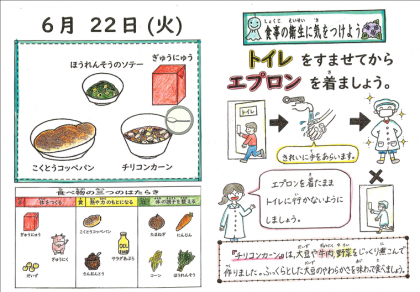 6月 22日(火)
ほうれんそうのソテー
ぎゅうにゅう
こくとうコッペパン
チリコンカーン
食べ物の三つのはたらき
体をつくる
熱や力のもとになる
体の調子を整える
ぎゅうにゅう
こくとうコッペパン
たまねぎ
にんじん
ぎゅうにく
だいず
さんおんとう
サラダあぶら
コーン
ほうれんそう
しょくじ えいせい
食事の衛生に気をつけよう
トイレ をすませてから
エプロン を着ましょう。
トイレ
きれいに手をあらいます。
エプロンを着たまま
トイレに行かないように
しましょう。
『チリコンカーン』は、大豆や牛肉、野菜をじっくり煮こんで
作りました。ふっくらとした大豆のやわらかさを味わって食べましょう。